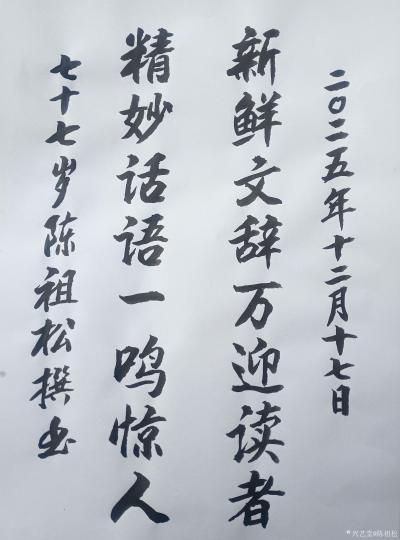 二〇二五年十二月十七日
新鲜文辞万迎读者
精妙话语一鸣惊人
七十七岁陈祖松撰书